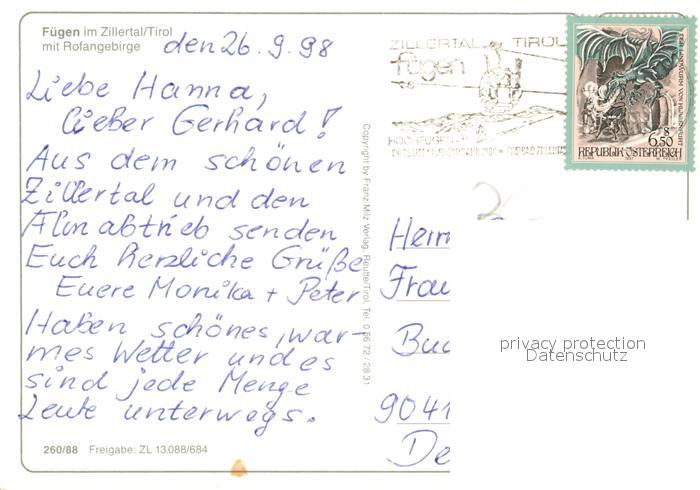 Fügen im Zillertal/Tirol
mit Rofangebirge
den 26.9.98
Liebe Hanna,
lieber Gerhard!
Aus dem schönen
Zillertal und den
Almabtrieb senden
Euch herzliche Grüße
Euere Monika + Peter
Haben schönes, war-
mes Wetter und es
sind jede Menge
Leute unterwegs.
260/88 Freigabe: ZL 13.088/684
Copyright by Franz Milz Verlag, Reutte/Tirol, Tel. 0 56 72 / 28 31
ZILLERTAL TIROL
fügen
S 6.50
REPUBLIK ÖSTERREICH
Herrn
Frau
Buc
9041
De
privacy protection
Datenschutz